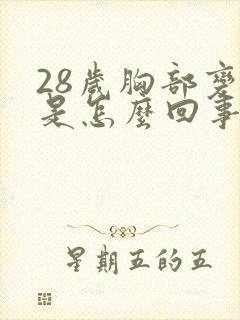 28歲胸部
是怎麼回事
星期五的五